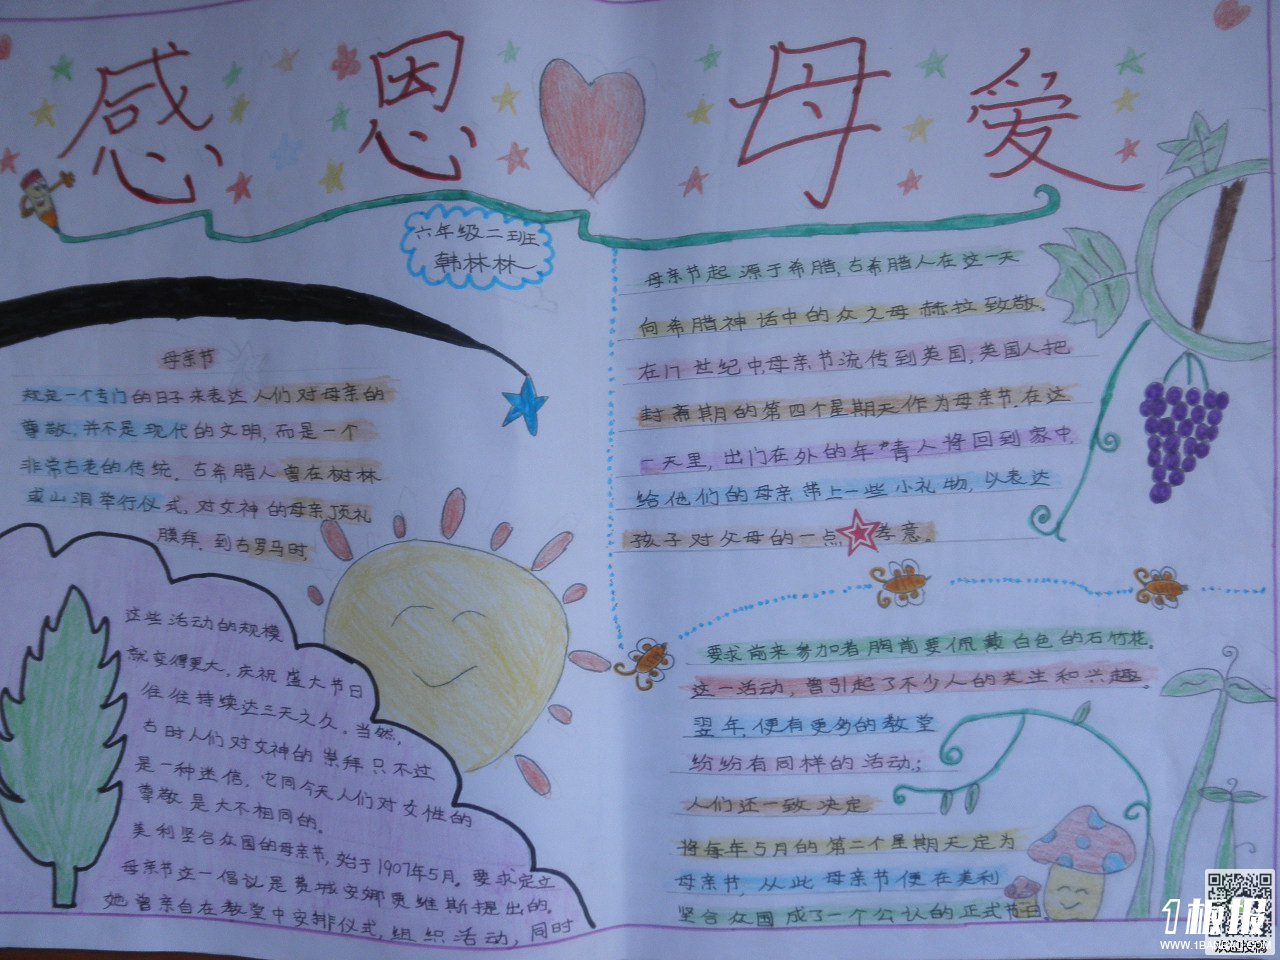 感恩母爱
六年级二班
韩林林
母亲节
规定一个专门的日子来表达人们对母亲的
尊敬,并不是现代的文明,而是一个
非常古老的传统。古希腊人曾在树林
或山洞举行仪式,对女神的母亲顶礼
膜拜。到古罗马时,
这些活动的规模
就变得更大,庆祝盛大节日
往往持续达三天之久。当然,
古时人们对女神的崇拜只不过
是一种迷信,它同今天人们对女性的
尊敬是大不相同的。
美利坚合众国的母亲节,始于1907年5月。要求定立
母亲节这一倡议是费城安娜贾维斯提出的。
她曾亲自在教堂中安排仪式,组织活动,同时
母亲节起源于希腊,古希腊人在这一天
向希腊神话中的众之母赫拉致敬。
在17世纪中,母亲节流传到英国,英国人把
封斋期的第四个星期天作为母亲节。在这
一天里,出门在外的年青人将回到家中,
给他们的母亲带上一些小礼物,以表达
孩子对父母的一点孝意。
要求前来参加者胸前要佩戴白色的石竹花。
这一活动,曾引起了不少人的关注和兴趣。
翌年,便有更多的教堂
纷纷有同样的活动;
人们还一致决定
将每年5月的第二个星期天定为
母亲节,从此母亲节便在美利
坚合众国成了一个公认的正式节日。
1板报
WWW.1BANBAO.COM
欢迎投稿